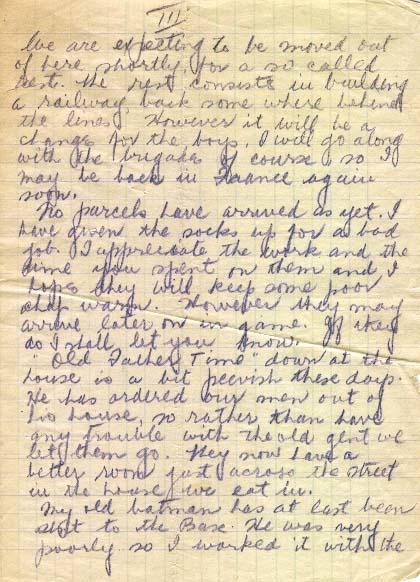 III
We are expecting to be moved out
of here shortly, for a so called
rest. The rest consists in building
a railway, back some where behind
the lines. However it will be a
change for the boys, I will go along
with the brigade of course, so I
may be back in France again
soon.
No parcels have arrived as yet. I
have given the socks up for a bad
job. I appreciate the work and the
time you spent on them and I
hope they will keep some poor
chap warm. However they may
arrive later on in game. If they
do I shall let you know.
"Old Father Time" down at the
house is a bit peevish these days.
He has ordered our men out of
his house, so rather than have
any trouble with the old gent we
let them go. They now have a
better room just across the street
in the house we eat in.
My old batman has at last been
sent to the Base. He was very
poorly so I worked it with the